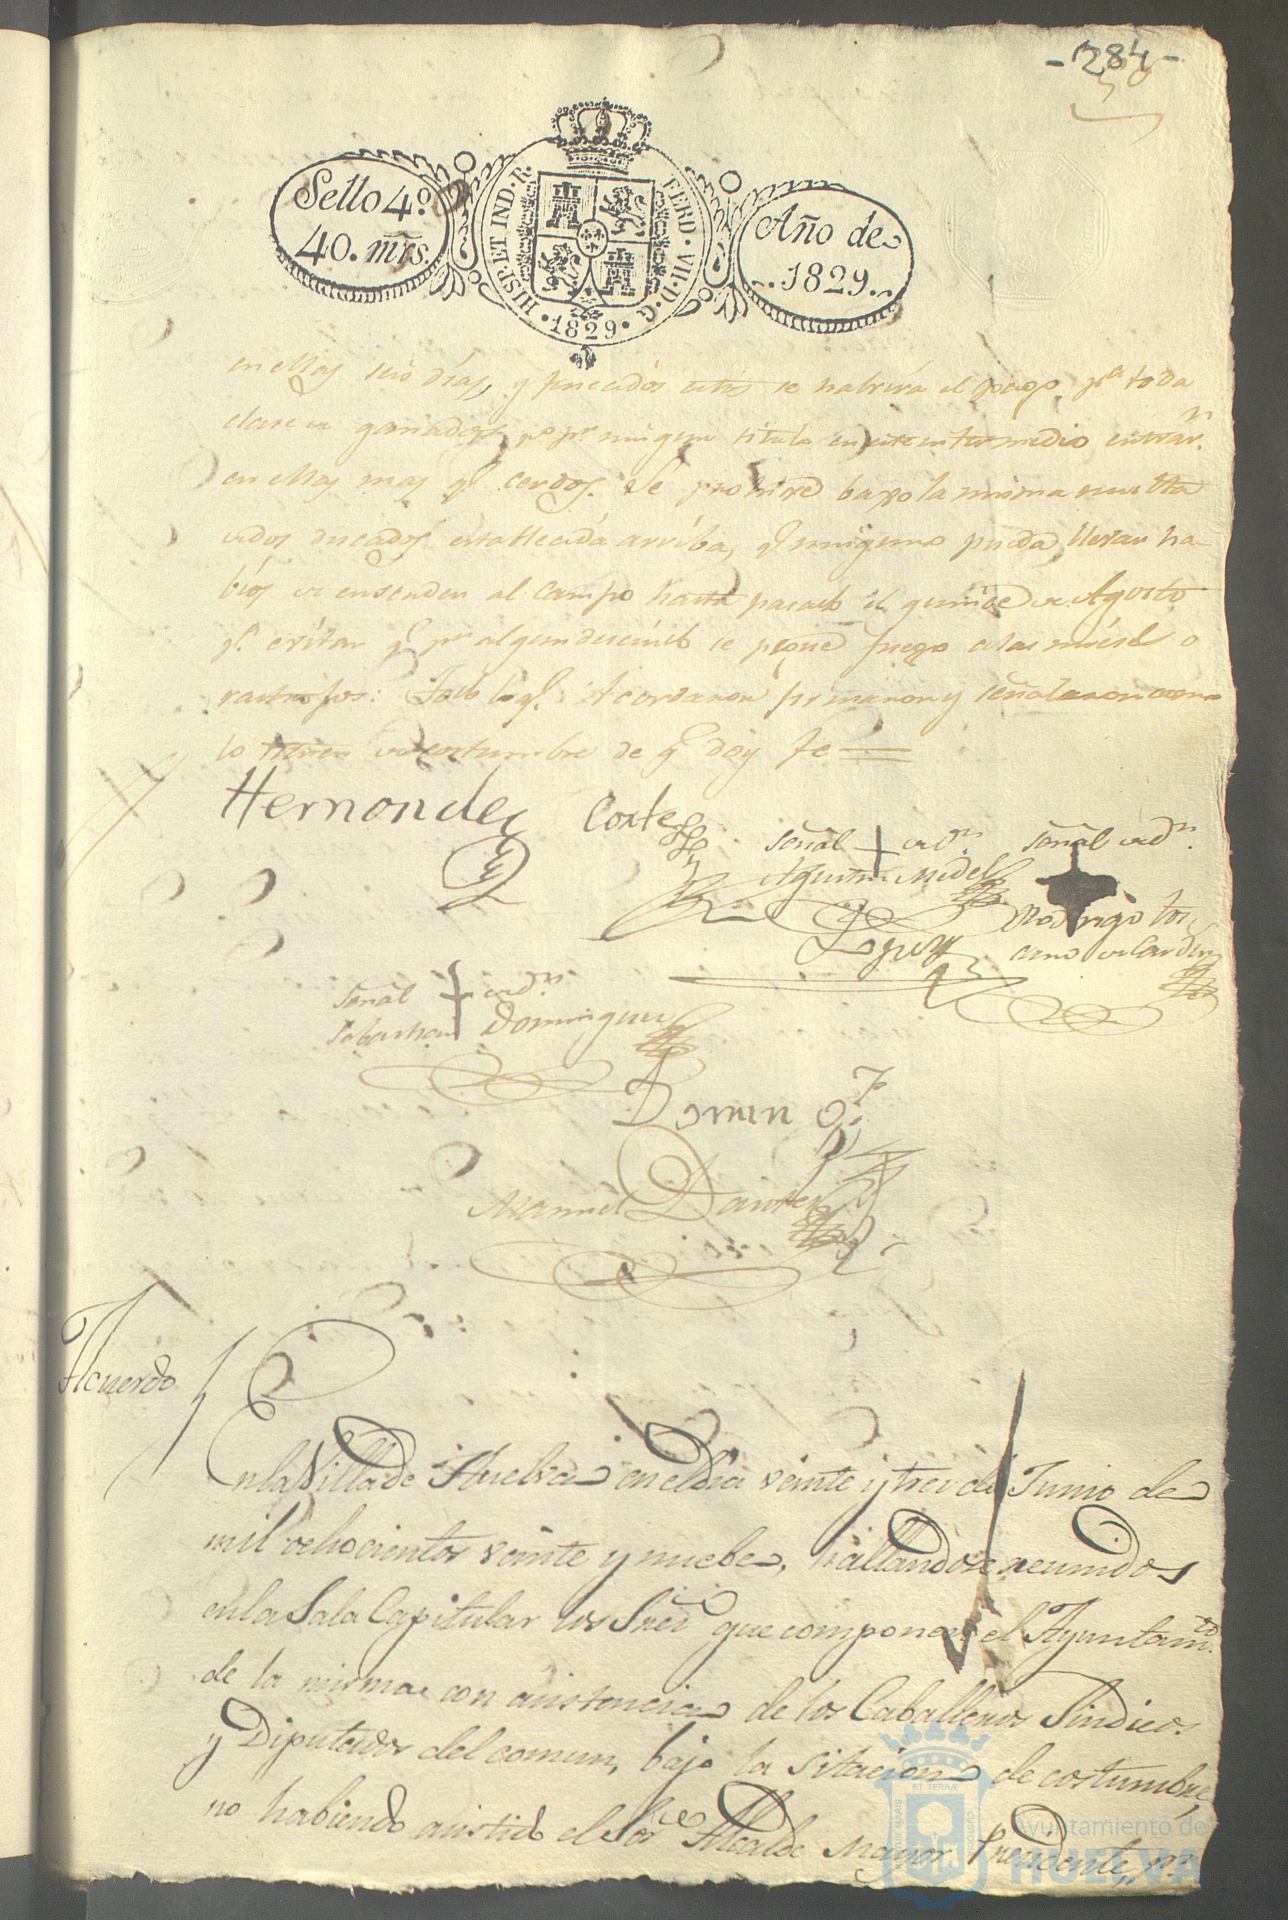 -284-
Sello 4º.
40. mrs.
HISP. ET IND. R. FERD. VII. D. G.
1829
Año de
1829.
en ellas seis días, y fenecidos estos se habrirá el pago pª toda
clase de ganados, pº pr ningun titulo en este intermedio entrarn
en ellas mas qe cerdos. Se prohive baxo la misma multa
de dos ducados establecida arriba, qe ninguno pueda llevar ha-
bios de ensender al campo hasta pasado el quince de Agosto
pª evitar qe pr algun descuido se pegue fuego a las mieses o
rastrojos: Todo lo qe Acordaron firmaron y señalaron como
lo tienen de costumbre de qe doy fe
Hernandez Cortes
señal de Dn. Agustin Medel
señal de Dn. Rodrigo
Lopez
señal de Dn.
Sebastian Dominguez
Domin
Manuel
Acuerdo
En la Villa de Huelva en el dia veinte y tres de Junio de
mil ochocientos veinte y nuebe, hallandose reunidos
en la Sala Capitular los Sres que componen el Ayuntamto.
de la misma con asistencia de los Caballeros Sindicos
y Diputados del comun, bajo la sitacion de costumbre,
no habiendo asistido el Sor Alcalde Mayor Presidente, pr
ET TERRÆ
Ayuntamiento de
HUELVA